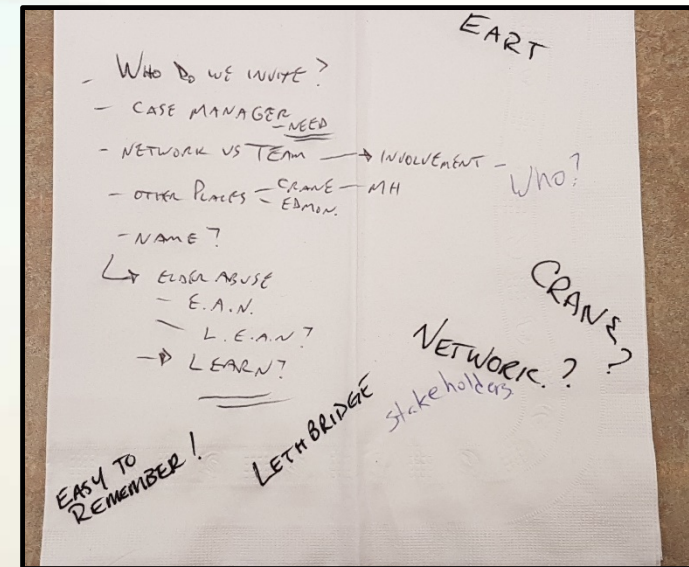 EART
- WHO DO WE INVITE?
- CASE MANAGER
- NEED
- NETWORK VS TEAM → INVOLVEMENT - Who?
- OTHER PLACES - CRANE - MH
- EDMON.
- NAME?
↳ ELDER ABUSE
- E.A.N.
- L.E.A.N?
→ LEARN?
CRANE?
NETWORK?
stakeholders
LETHBRIDGE
EASY TO
REMEMBER!